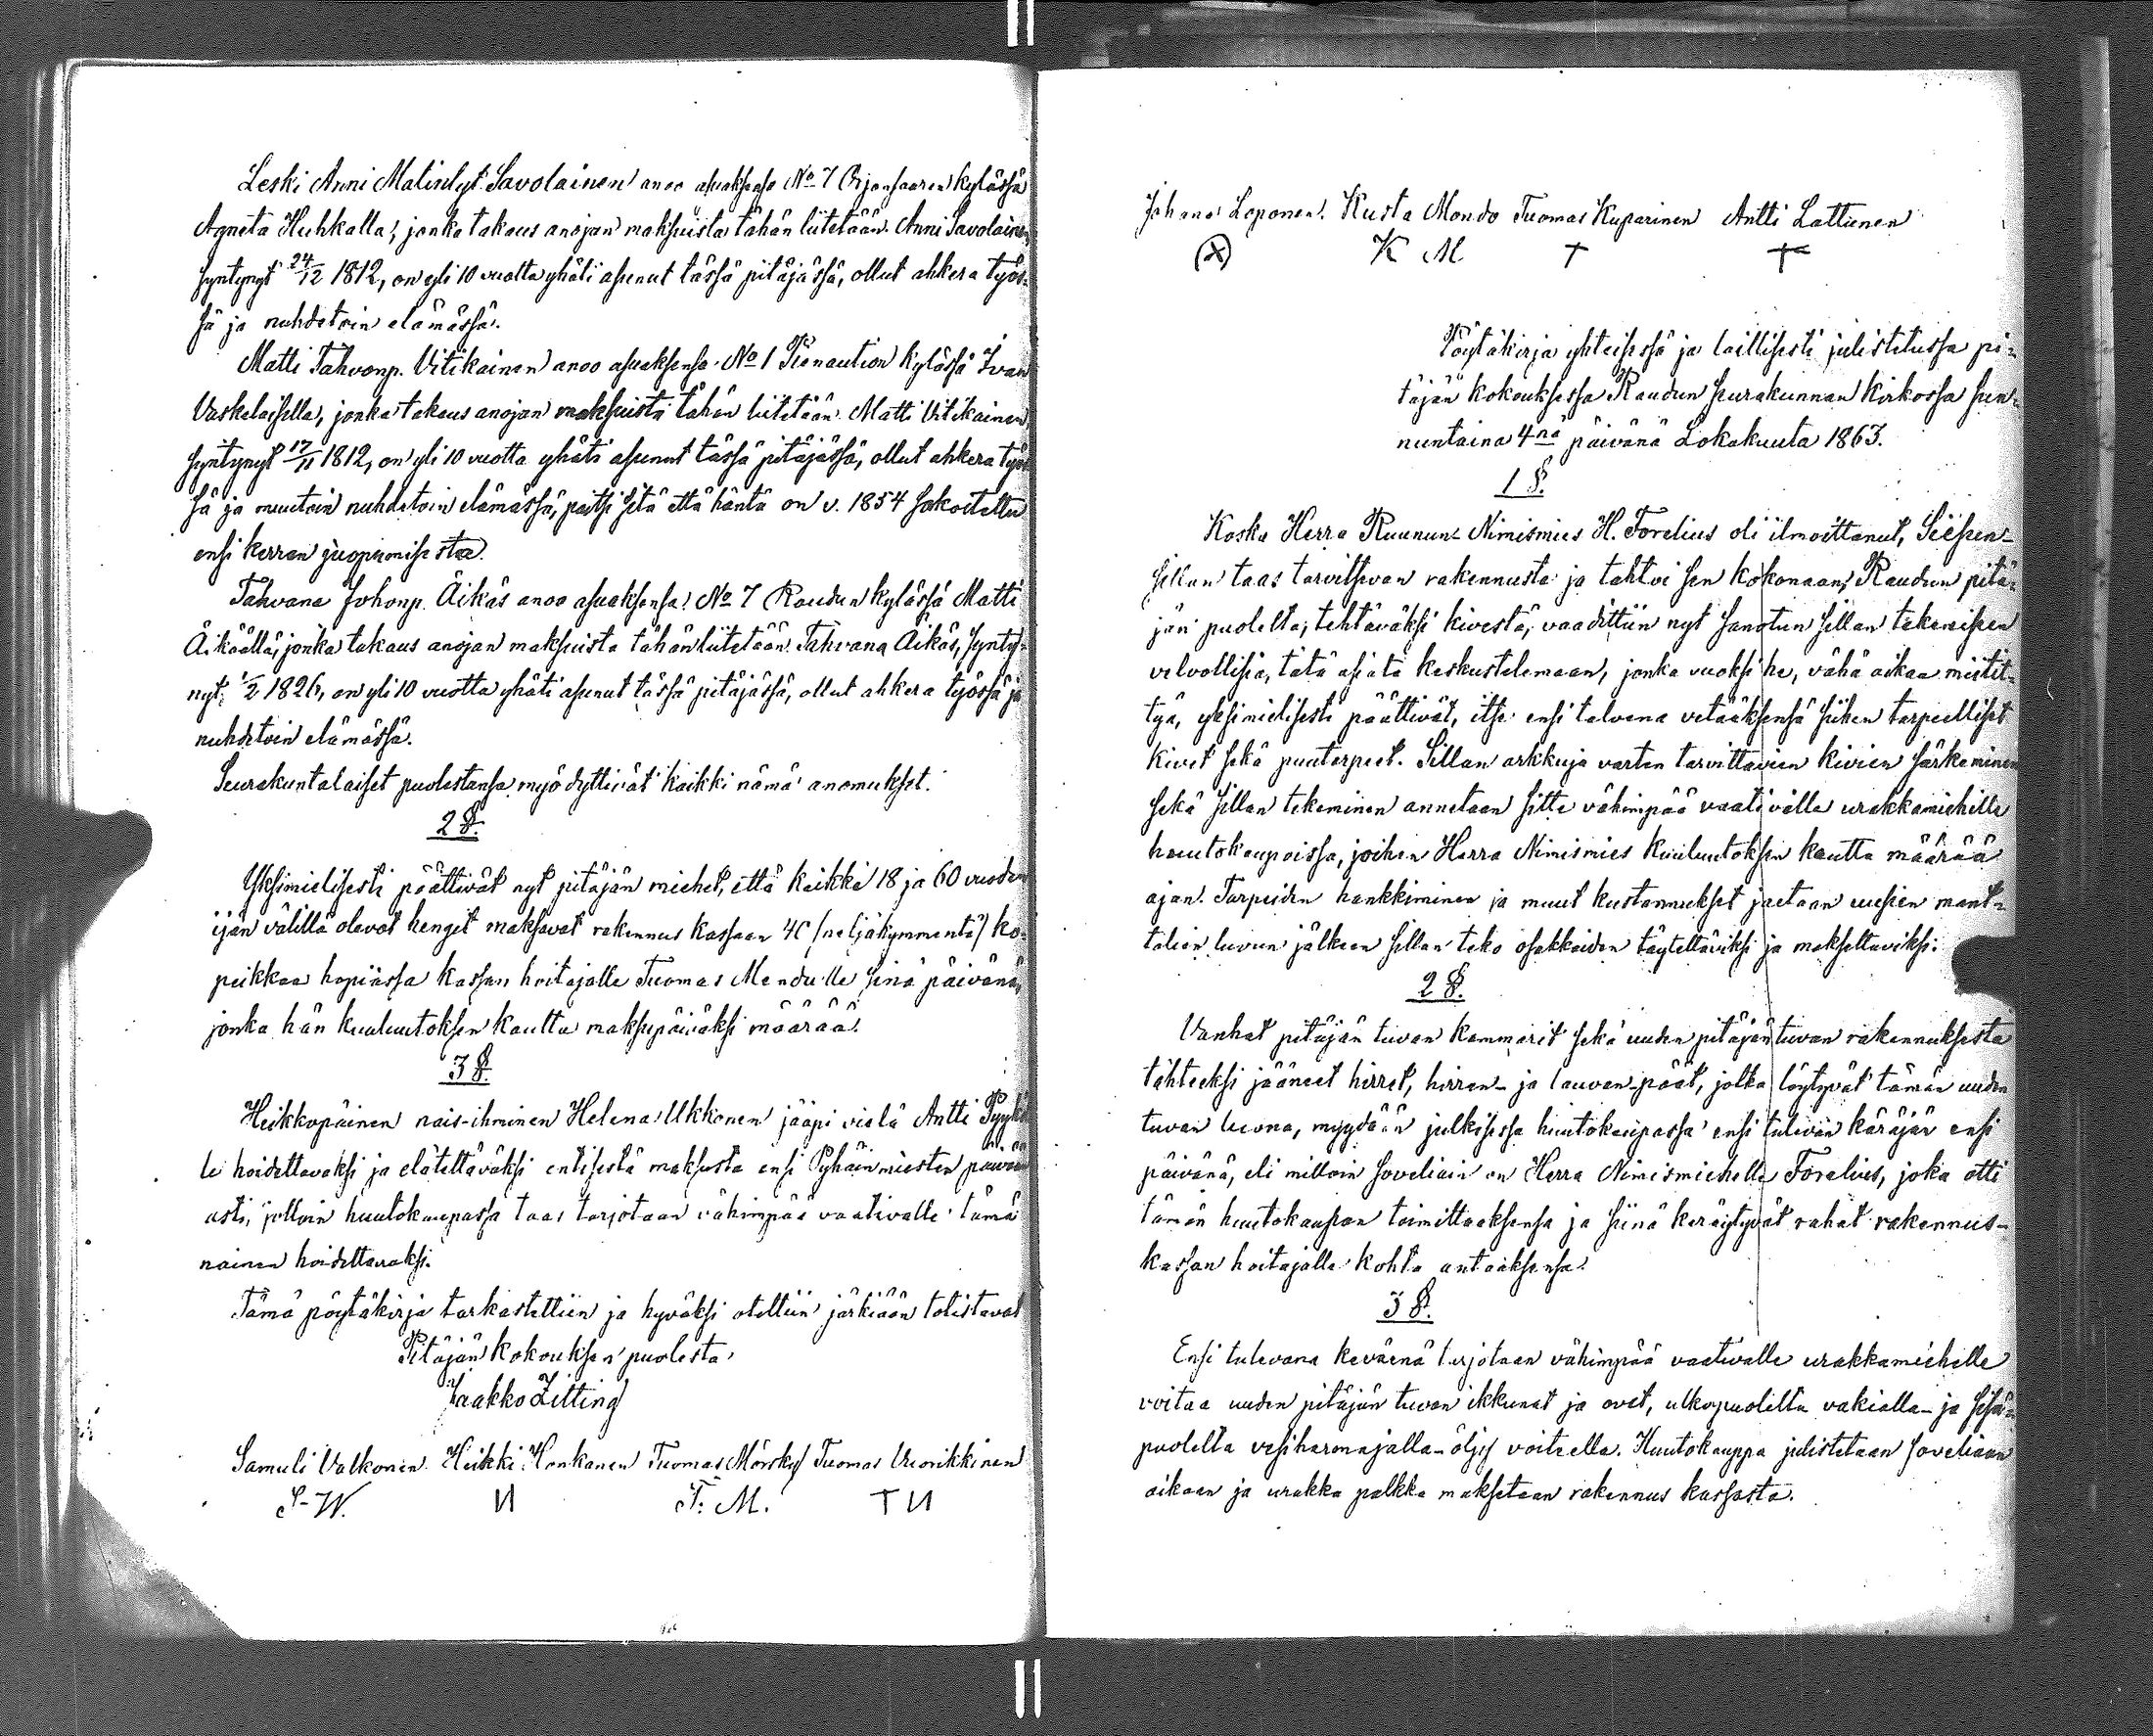 Leski Anni Malintyt. Savolainen anoo asuaksensa No 7 Orjansaaren kylässä
Agneta Huhkalla, jonka takaus anojan maksuista tähän liitetään. Anni Savolainen,
syntynyt 24/12 1812, on yli 10 vuotta yhäti asunut tässä pitäjässä, ollut ahkera työs=
sä ja nuhdetoin elämässä.
Matti Tahvonp. Vitikainen anoo asuaksensa No 1 Pienaution kylässä Ivan
Vaskelaisella, jonka takaus anojan maksuista tähän liitetään. Matti Vitikainen,
syntynyt 17/11 1812, on yli 10 vuotta yhäti asunut tässä pitäjässä, ollut ahkera työs
sä ja muutoin nuhdetoin elämässä, paitsi sitä että häntä on v. 1854 sakoitettu
ensi kerran juopumisesta.
Tahvana Johanp. Äikäs anoo asuaksensa No 7 Raudun kylässä Matti
Äikäällä, jonka takaus anojan maksuista tähän liitetään. Tahvana Äikäs, synty=
nyt 1/2 1826, on yli 10 vuotta yhäti asunut tässä pitäjässä, ollut ahkera työssä ja
nuhdetoin elämässä.
Seurakuntalaiset puolestansa myödyttivät kaikki nämä anomukset.
2 §.
Yksimielisesti päättivät nyt pitäjän miehet, että kaikki 18 ja 60 vuoden
ijän välillä olevat henget maksavat rakennus kassaan 40 (neljäkymmentä) ko=
peikkaa hopiassa kassan hoitajalle Tuomas Mondu'lle sinä päivänä,
jonka hän kuuluutoksen kautta maksupäiväksi määrää.
3 §.
Heikkopäinen nais-ihminen Helena Ukkonen jääpi vielä Antti
le hoidettavaksi ja elätettäväksi entisestä maksusta ensi Pyhäinmiesten päivään
asti, jolloin huutokaupassa taas tarjotaan vähimpää vaativalle tämä
nainen hoidettavaksi.
Tämä pöytäkirja tarkastettiin ja hyväksi otettiin järkiään todistavat
Pitäjän kokouksen puolesta
Jaakko Zitting
Samuli Valkonen Heikki Honkanen Tuomas Mörsky Tuomas Vuorikkinen
S-W. И T. M. T И
Johana Loponen. Kusta Mondo Tuomas Kuparinen Antti Lattunen
(X) K M + +
Pöytäkirja yhteisessä ja laillisesti julistetussa pi=
täjän kokouksessa Raudun seurakunnan kirkossa sun=
nuntaina 4nä päivänä Lokakuuta 1863.
1 §.
Koska Herra Ruunun-Nimismies H. Forelius oli ilmoittanut,
sillan taas tarvitsevan rakennusta ja tahtoi sen kokonaan, Raudun pitä=
jän puolelta, tehtäväksi kivestä, vaadittiin nyt sanotun sillan tekemiseen
velvollisia, tätä asiata keskustelemaan, jonka vuoksi he, vähä aikaa miitit=
tyä, yksimielisesti päättivät, itse ensi talvena vetääksensä siihen tarpeelliset
kivet sekä puutarpeet. Sillan arkkuja varten tarvittavien kivien särkeminen
sekä sillan tekeminen annetaan sitte vähimpää vaativalle urakkamiehille
huutokaupoissa, joihen Herra Nimismies kuuluutoksen kautta määrää
ajan. Tarpeiden hankkiminen ja muut kustannukset jaetaan uusien mant=
talien luvun jälkeen sillan teko osakkaiden täytettäviksi ja maksettaviksi.
2 §.
Vanhat pitäjän tuvan kammarit sekä uuden pitäjän tuvan rakennuksesta
tähteeksi jääneet hirret, hirren- ja lauvan-päät, jotka löytyvät tämän uuden
tuvan luona, myydään julkisessa huutokaupassa ensi tulevan käräjän ensi
päivänä, eli milloin soveliain on Herra Nimismiehelle Forelius, joka otti
tämän huutokaupan toimittaaksensa ja siinä keräytyvät rahat rakennus-
kassan hoitajalle kohta antaaksensa.
3 §.
Ensi tulevana keväenä tarjotaan vähimpää vaativalle urakkamiehelle
voitaa uuden pitäjän tuvan ikkunat ja ovet, ulkopuolelta vakialla- ja sisä=
puolelta vesiharmajalla-öljy voiteella. Huutokauppa julistetaan soveliaan
aikaan ja urakka palkka maksetaan rakennus kassasta.